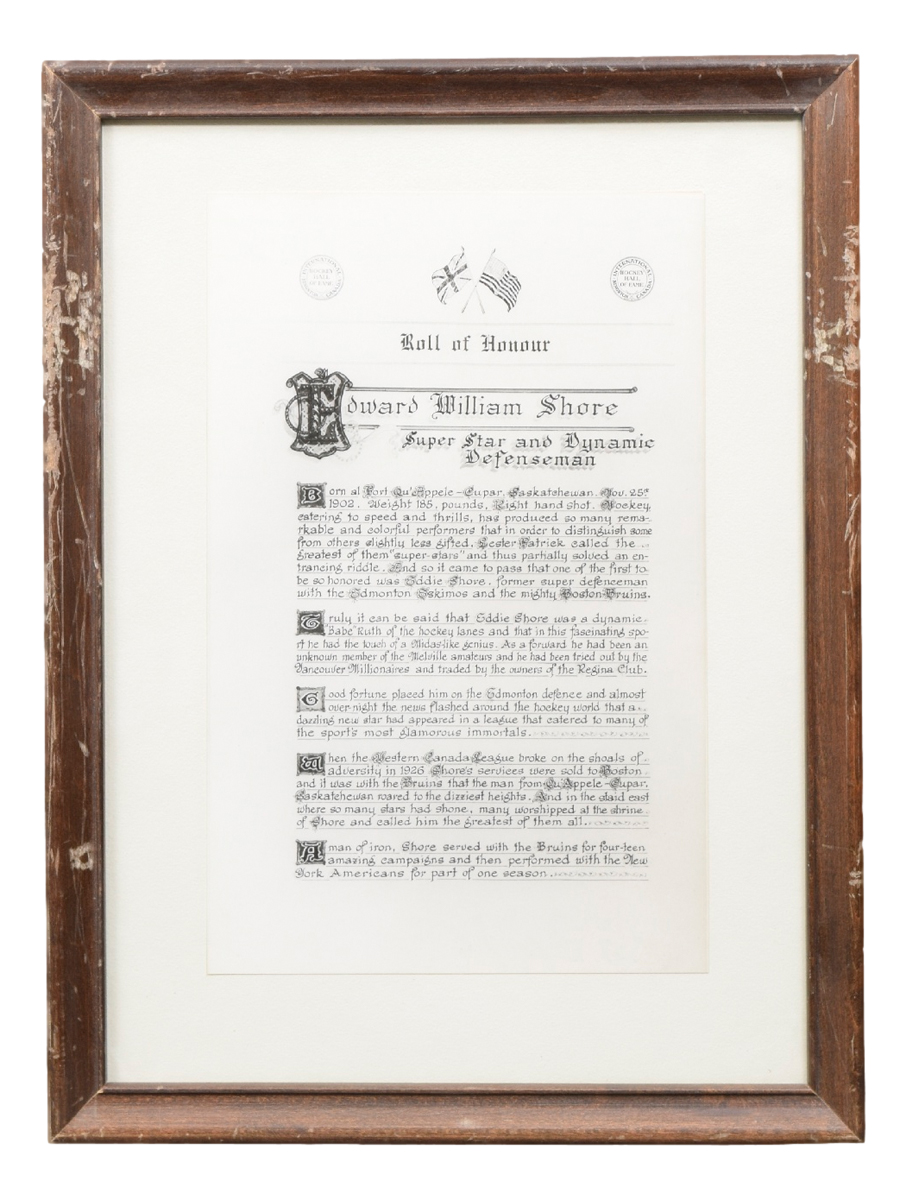 INTERNATIONAL HOCKEY HALL OF FAME KINGSTON CANADA
INTERNATIONAL HOCKEY HALL OF FAME KINGSTON CANADA
Roll of Honour
Edward William Shore
Super Star and Dynamic
Defenseman
Born at Fort Qu'Appele-Cupar, Saskatchewan. Nov. 25th
1902. Weight 185, pounds, Right hand shot. Hockey,
catering to speed and thrills, has produced so many rema-
rkable and colorful performers that in order to distinguish some
from others slightly less gifted, Lester Patrick called the
greatest of them "super-stars" and thus partially solved an en-
trancing riddle. And so it came to pass that one of the first to
be so honored was Eddie Shore, former super defenceman
with the Edmonton Eskimos and the mighty Boston-Bruins.
Truly it can be said that Eddie Shore was a dynamic
"Babe" Ruth of the hockey lanes and that in this fascinating spo-
rt he had the touch of a Midas-like genius. As a forward he had been an
unknown member of the Melville amateurs and he had been tried out by the
Vancouver Millionaires and traded by the owners of the Regina Club.
Good fortune placed him on the Edmonton defence and almost
over-night the news flashed around the hockey world that a
dazzling new star had appeared in a league that catered to many of
the sport's most glamorous immortals.
When the Western Canada League broke on the shoals of
adversity in 1926 Shore's services were sold to Boston
and it was with the Bruins that the man from Qu'Appele-Cupar,
Saskatchewan roared to the dizziest heights. And in the staid east
where so many stars had shone, many worshipped at the shrine
of Shore and called him the greatest of them all.
A man of iron, Shore served with the Bruins for four-teen
amazing campaigns and then performed with the New
York Americans for part of one season.